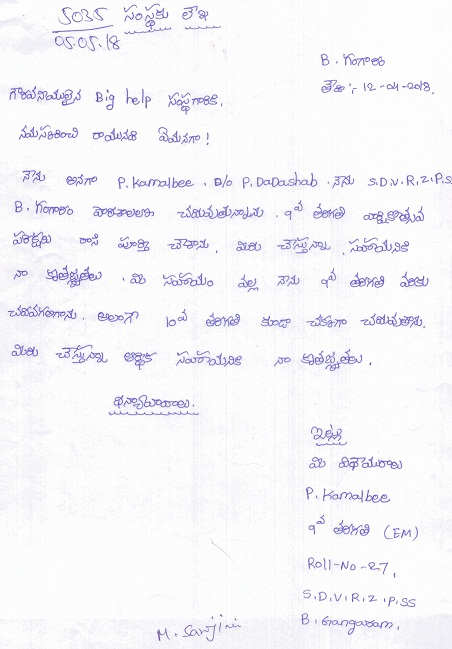 5035 సంస్థకు లేఖ
05.05.18
B. గంగారం
తేది :- 12-04-2018.
గౌరవనీయులైన Big help సంస్థగారికి,
నమస్కరించి రాయునది ఏమనగా!
నేను అనగా P. Kamalbee. D/o P. DaDashab. నేను S.D.V.R.Z.P.SS
B. గంగారం పాఠశాలలో చదువుతున్నాను. 9వ తరగతి వార్షికోత్సవ
పరీక్షలు రాసి పూర్తి చేశాను. మీరు చేస్తున్నా సహాయనికి
నా కృతజ్ఞతలు. మీ సహాయం వల్ల నేను 9వ తరగతి వరకు
చదవగలిగాను. అలాగే 10వ తరగతి కుడా చక్కగా చదువుతాను.
మీరు చేస్తున్నా ఆర్థిక సహాయనికి నా కృతజ్ఞతలు.
ధన్యావాదాలు.
ఇట్లు
మీ విధేయురాలు
P. Kamalbee
9వ తరగతి (EM)
Roll-No-27,
S.D.V.R.Z.P.SS
B. Gangaram,
M. Sarojini